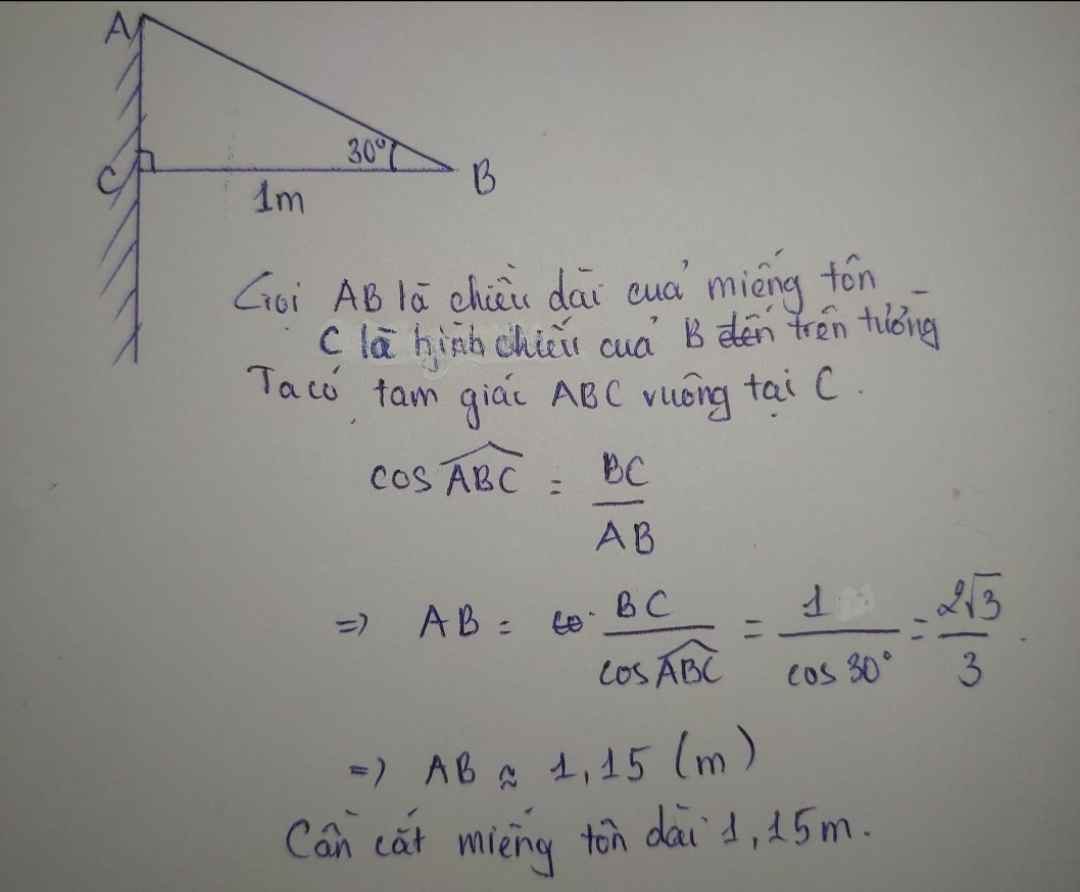 A
30°
C
B
1m
Gọi AB là chiều dài của miếng tôn
C là hình chiếu của B đến trên tường
Ta có tam giác ABC vuông tại C.
cos ABC = BC / AB
=> AB = BC / cos ABC = 1 / cos 30° = 2√3 / 3.
=> AB ≈ 1,15 (m)
Cần cắt miếng tôn dài 1,15m.